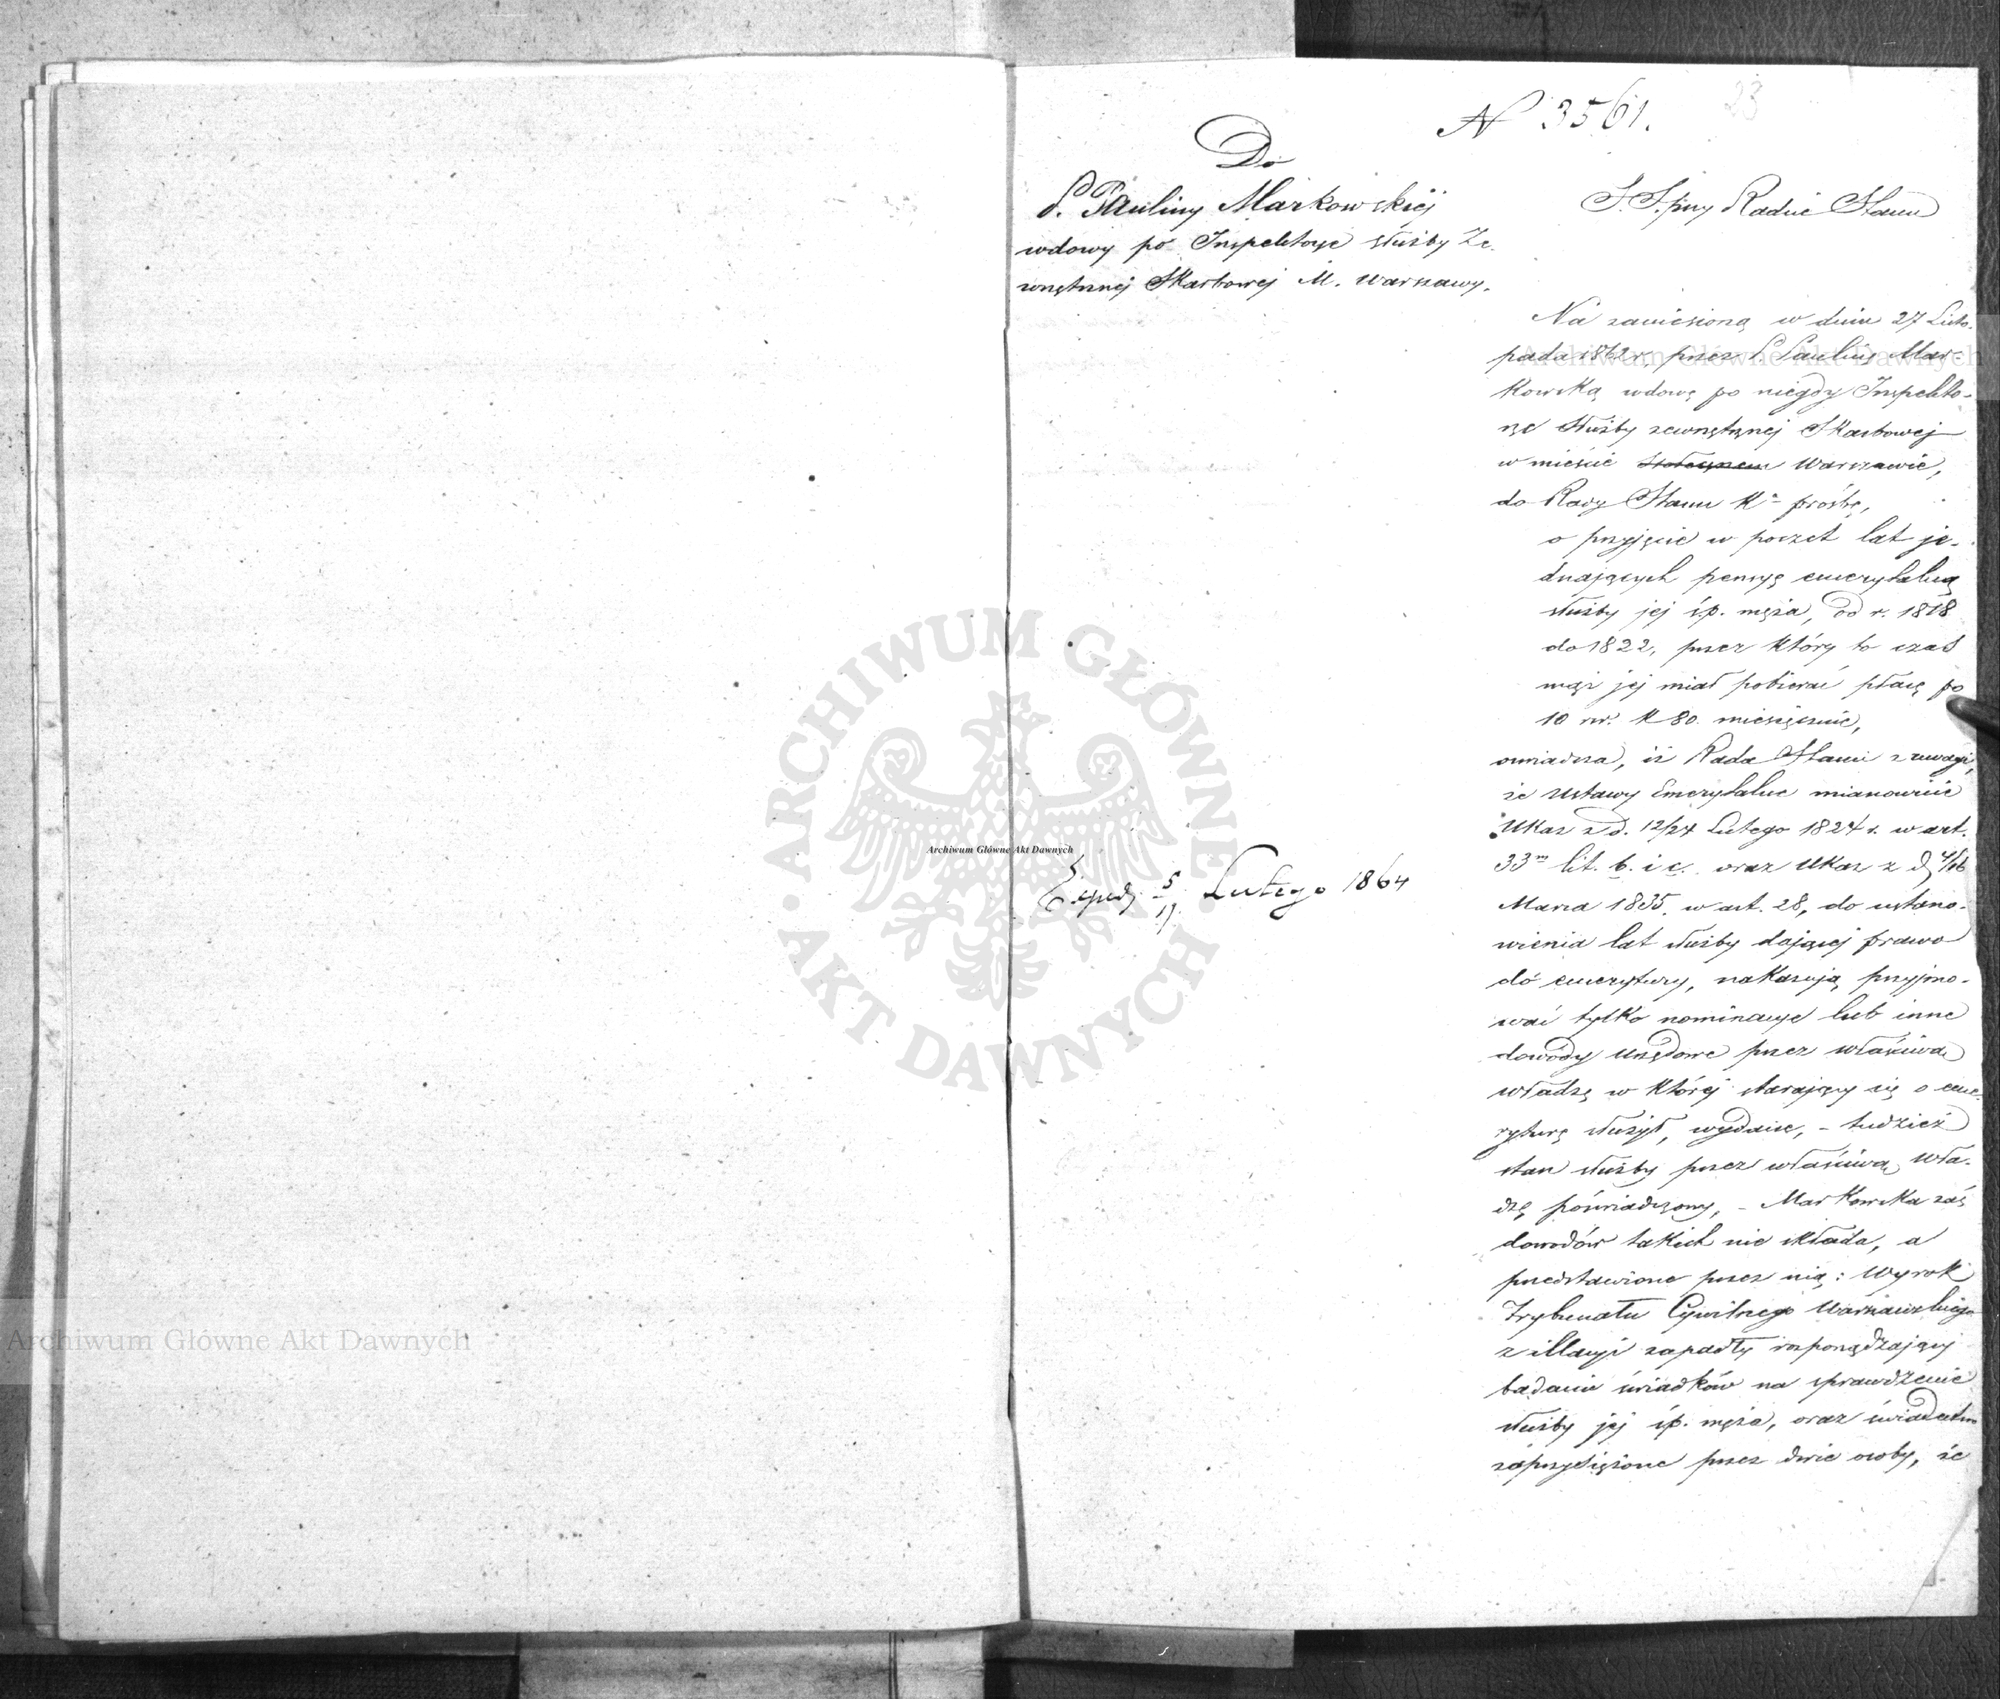 23
N 3561.
Do
P. Pauliny Markowskiej
wdowy po Inspektorze służby Ze-
wnętrznej Skarbowej M. Warszawy.
Radcie Stanu
Na zaniesioną w dniu 27 Listo-
pada 1862 r. przez P. Paulinę Mar-
kowską wdowę po niegdy Inspekto-
rze służby zewnętrznej Skarbowej
w mieście Warszawie,
do Rady Stanu Kr prośbę,
o przyjęcie w poczet lat je-
dnających pensyę emerytalną
służby jej ś.p. męża, od r. 1818
do 1822, przez który to czas
mąż jej miał pobierać płacę po
10 rsr. k 80. miesięcznie,
oznajmia, iż Rada Stanu z uwagi,
że Ustawy Emerytalne mianowicie
Ukaz z d. 12/24 Lutego 1824 r. w art.
33m lit. b. i c. oraz Ukaz z d 4/16
Marca 1835. w art. 28, do ustano-
wienia lat służby dającej prawo
do emerytury, nakazują przyjmo-
wać tylko nominacye lub inne
dowody urzędowe przez właściwą
władzę w której starający się o eme-
ryturę służył, wydane, - tudzież
stan służby przez właściwą wła-
dzę poświadczony, - Markowska zaś
dowodów takich nie składa, a
przedstawione przez nią: Wyrok
Trybunału Cywilnego Warszawskiego
z illacyi zapadły rozporządzający
badanie świadków na sprawdzenie
służby jej ś.p. męża, oraz świadectwo
zaprzysiężone przez dwie osoby, że
Exped. 5/17 Lutego 1864
ARCHIWUM GŁÓWNE AKT DAWNYCH
Archiwum Główne Akt Dawnych
Archiwum Główne Akt Dawnych
Archiwum Główne Akt Dawnych